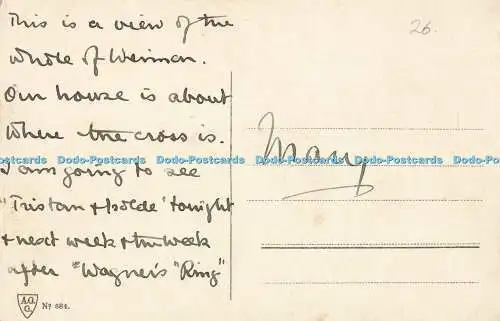 This is a view of the
26.
whole of Weimar.
Our house is about
where the cross is.
Mary
Dodo-Postcards Dodo-Postcards Dodo-Postcards Dodo-Postcards Dodo-Postcards Dodo-Postcards
I am going to see
"Tristan & Isolde' tonight
& next week & the week
after "Wagner's "Ring"
A.O.
Nº 684.